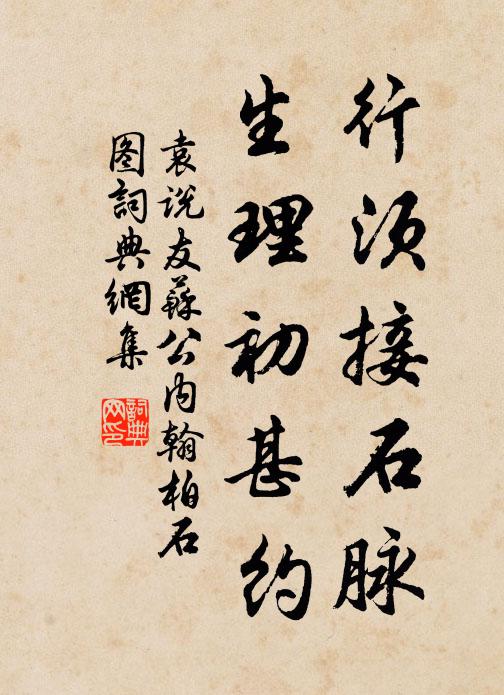 行须接石脉
生理初甚约
袁说友蘇公内翰柏石
图詞典網集
詞典
网印